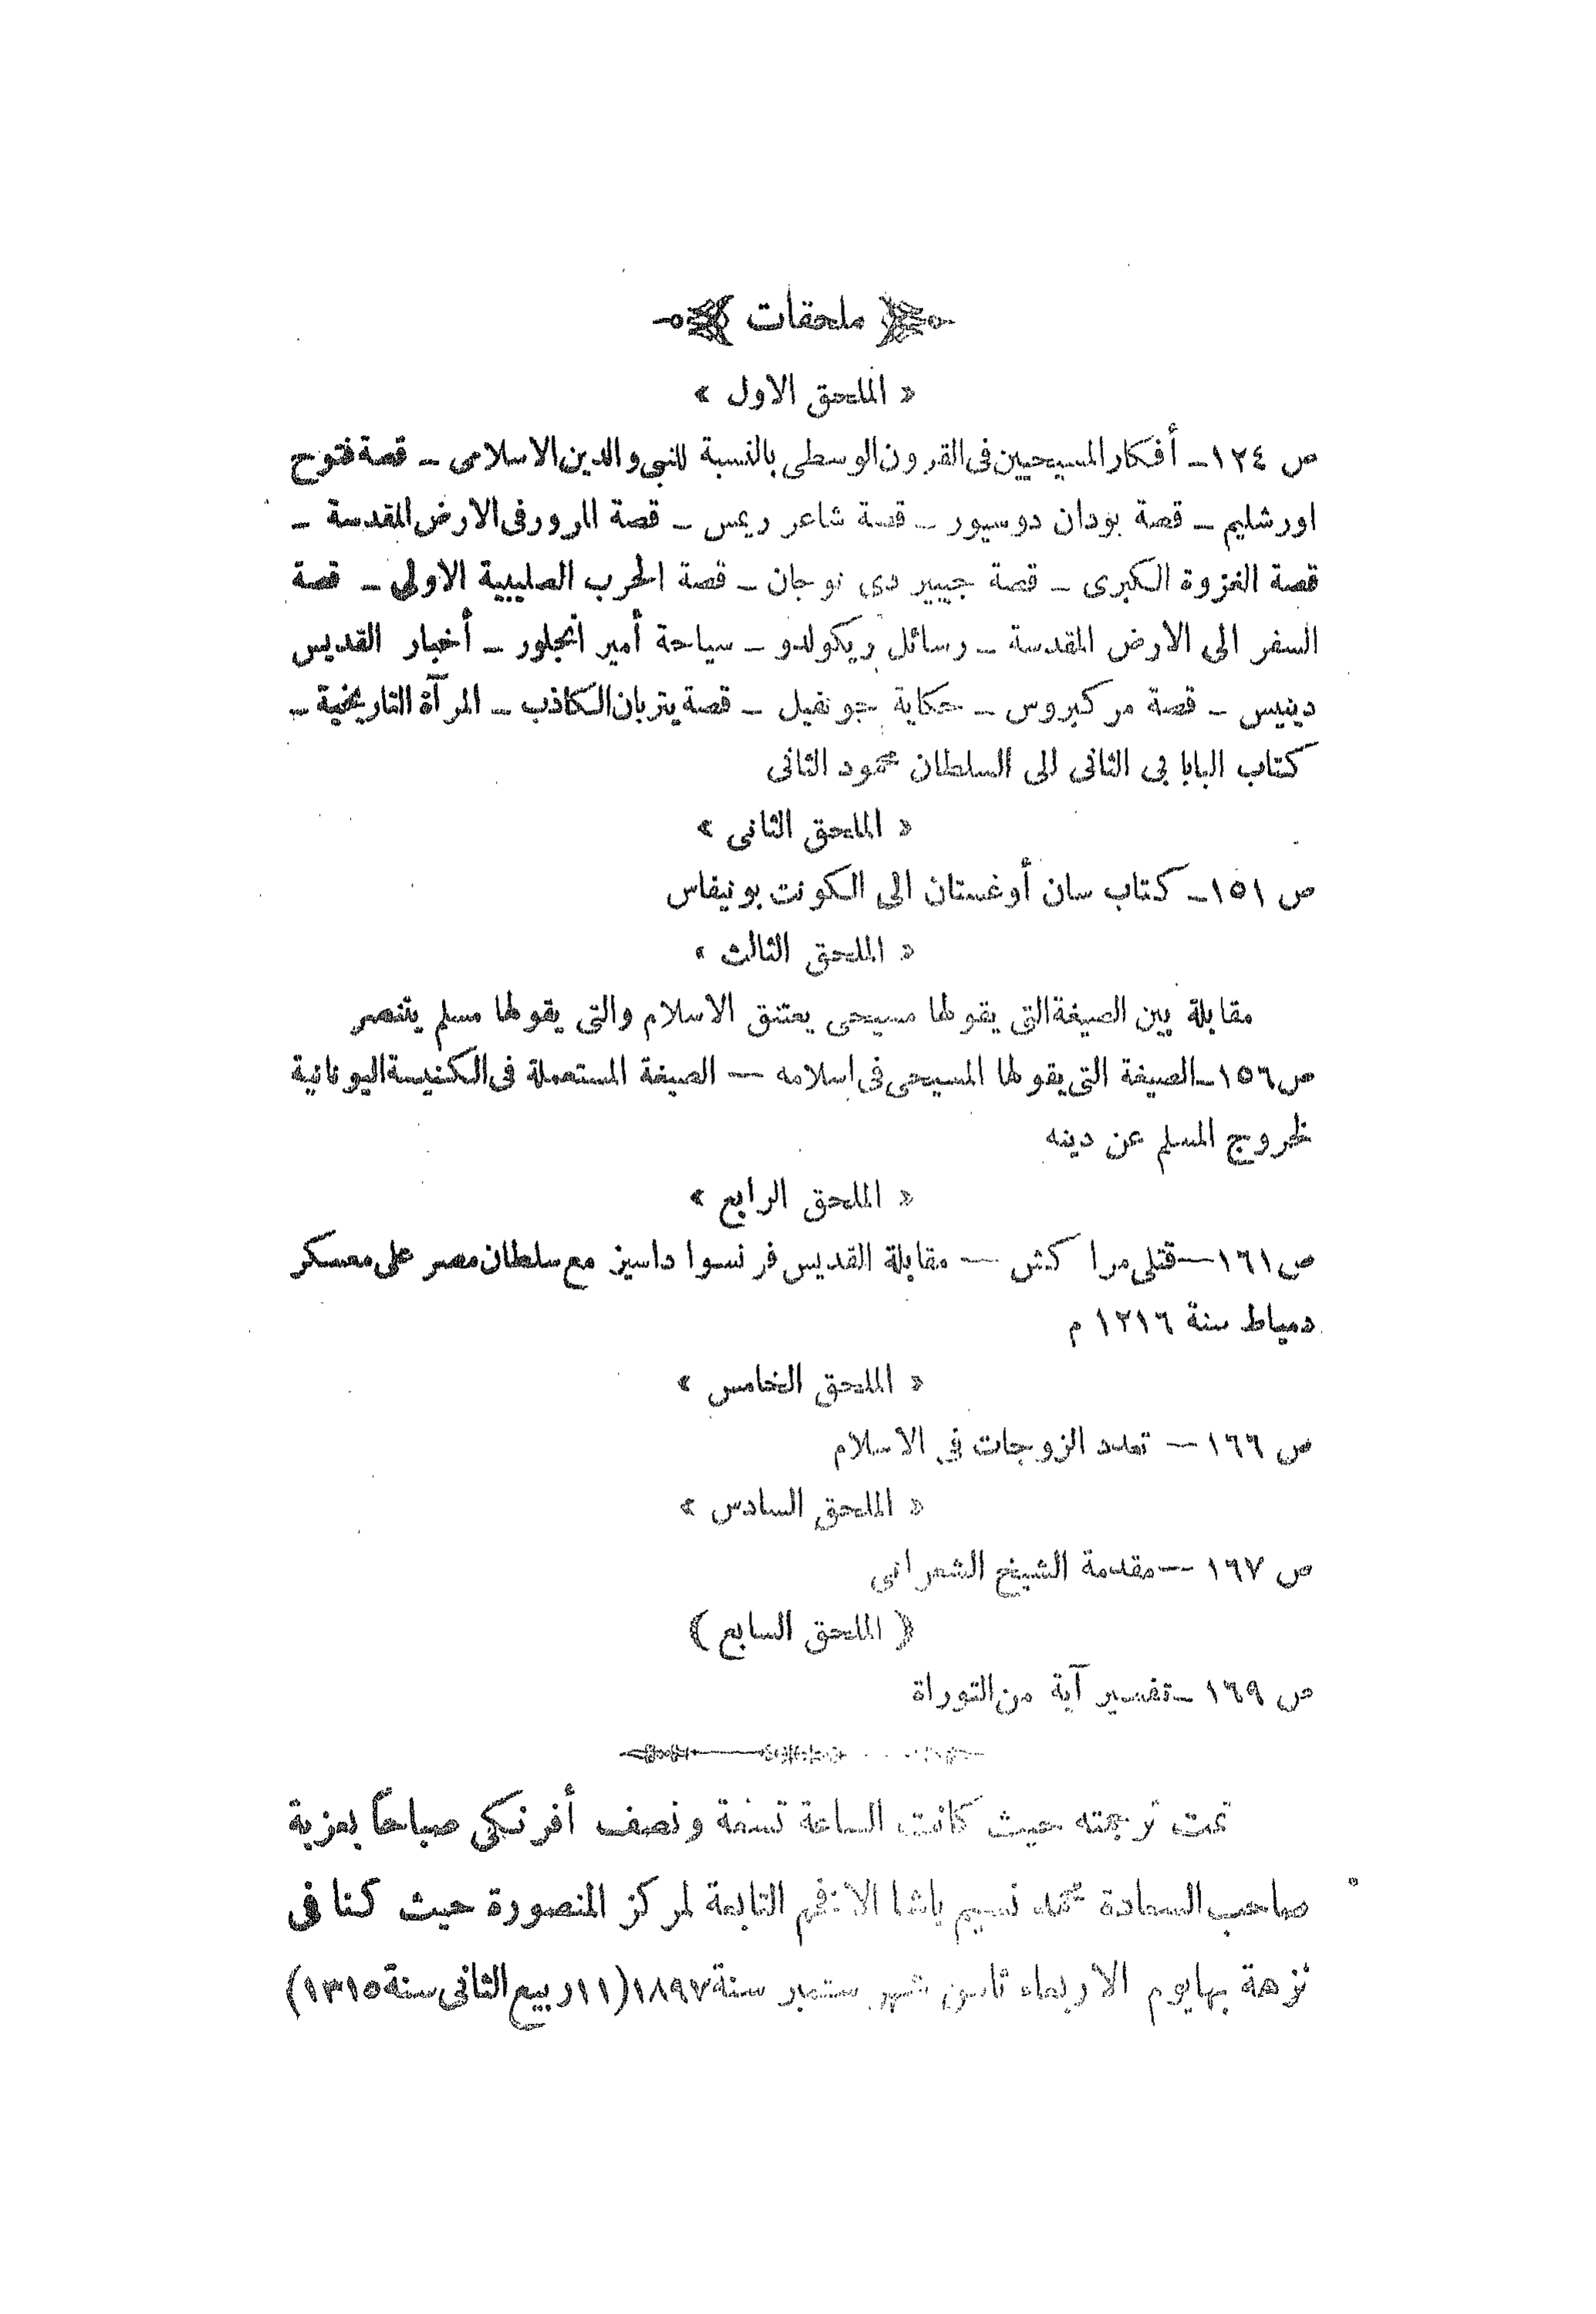 ملحقات
« الملحق الاول »
ص ١٢٤ـ أفكار المسيحيين فى القرون الوسطى بالنسبة للنبى والدين الاسلامى ـ قصة فتوح
اورشليم ـ قصة بودان دوسيور ـ قصة شاعر ريمس ـ قصة المرور فى الارض المقدسة ـ
قصة الغزوة الكبرى ـ قصة جيبير دى نوجان ـ قصة الحرب الصليبية الاولى ـ قصة
السفر الى الارض المقدسة ـ رسائل ريكولدو ـ سياحة أمير انجلور ـ أخبار القديس
دينيس ـ قصة مركبروس ـ حكاية جونفيل ـ قصة يتربان الكاذب ـ المرآة التاريخية ـ
كتاب البابا بى الثانى الى السلطان محمود الثانى
« الملحق الثانى »
ص ١٥١ـ كتاب سان أوغستان الى الكونت بونيفاس
« الملحق الثالث »
مقابلة بين الصيغة التى يقولها مسيحى يعتنق الاسلام والتى يقولها مسلم يتنصر
ص ١٥٦ـ الصيغة التى يقولها المسيحى فى اسلامه — الصيغة المستعملة فى الكنيسة اليونانية
لخروج المسلم عن دينه
« الملحق الرابع »
ص ١٦١— قتلى مراكش — مقابلة القديس فرنسوا داسيز مع سلطان مصر على معسكر
دمياط سنة ١٢١٦ م
« الملحق الخامس »
ص ١٦٦ — تعدد الزوجات فى الاسلام
« الملحق السادس »
ص ١٦٧ — مقدمة الشيخ الشعرانى
( الملحق السابع )
ص ١٦٩ ـ تفسير آية من التوراة
تمت ترجمته حيث كانت الساعة تسعة ونصف أفرنكى صباحاً بعزبة
صاحب السعادة محمد نسيم باشا الافخم التابعة لمركز المنصورة حيث كنا فى
نزهة بها يوم الاربعاء ثامن شهر ستمبر سنة ١٨٩٧ (١١ ربيع الثانى سنة ١٣١٥)